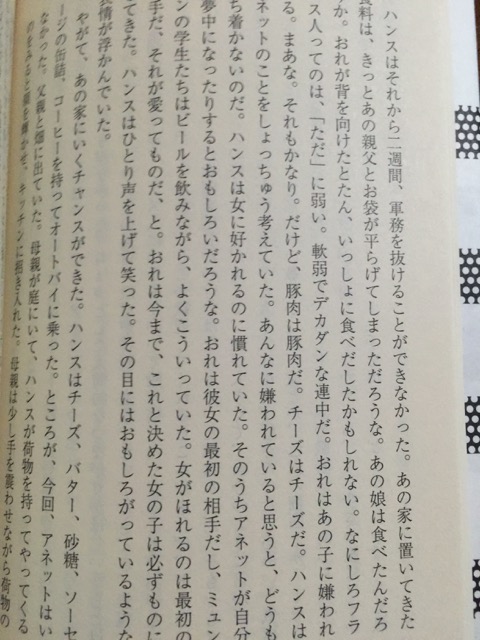 ハンスはそれから二週間、軍務を抜けることができなかった。あの家に置いてきた
食料は、きっとあの親父とお袋が平らげてしまっただろうな。あの娘は食べたんだろ
うか。おれが背を向けたとたん、いっしょに食べだしたかもしれない。なにしろフラ
ンス人ってのは、「ただ」に弱い。軟弱でデカダンな連中だ。おれはあの子に嫌われ
る。まあな。それもかなり。だけど、豚肉は豚肉だ。チーズはチーズだ。ハンスは
アネットのことをしょっちゅう考えていた。あんなに嫌われていると思うと、どうも
ち着かないのだ。ハンスは女に好かれるのに慣れていた。そのうちアネットが自分
夢中になったりするとおもしろいだろうな。おれは彼女の最初の相手だし、ミュン
ンの学生たちはビールを飲みながら、よくこういっていた。女がほれるのは最初の
手だ、それが愛ってものだ、と。おれは今まで、これと決めた女の子は必ずものに
てきた。ハンスはひとり声を上げて笑った。その目にはおもしろがっているような
表情が浮かんでいた。
やがて、あの家にいくチャンスができた。ハンスはチーズ、バター、砂糖、ソーセ
ージの缶詰、コーヒーを持ってオートバイに乗った。ところが、今回、アネットはい
なかった。父親と畑に出ていた。母親が庭にいて、ハンスが荷物を持ってやってくる
のをみると顔を輝かせ、キッチンに招き入れた。母親は少し手を震わせながら荷物の